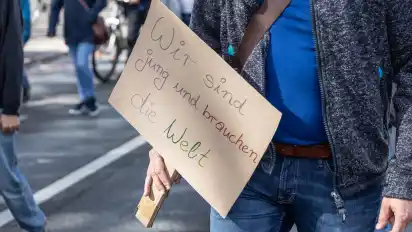 Wir sind
jung und brauchen
die Welt